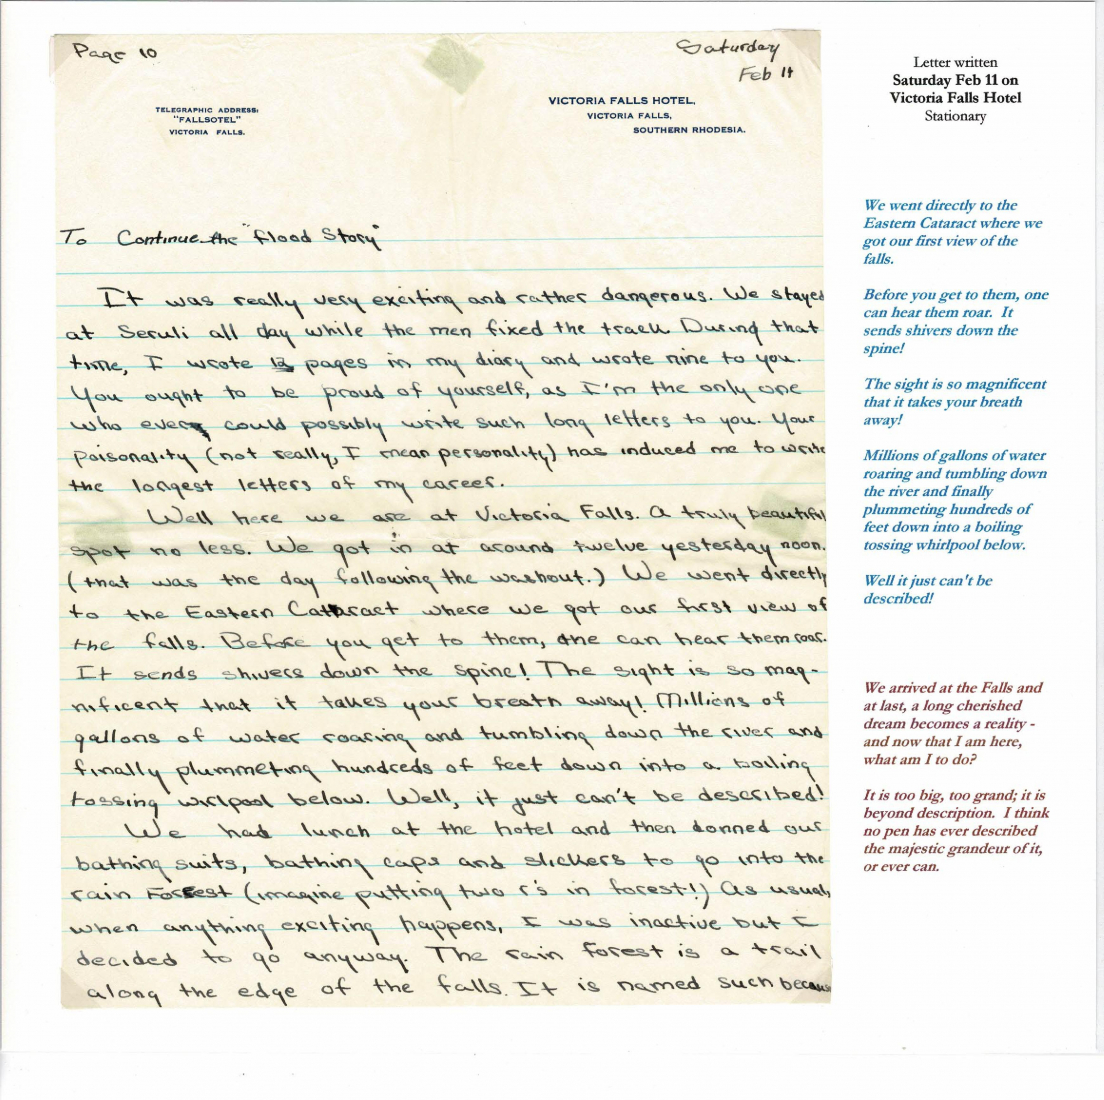 Page 10
Saturday
Feb 11
TELEGRAPHIC ADDRESS:
"FALLSOTEL"
VICTORIA FALLS.
VICTORIA FALLS HOTEL,
VICTORIA FALLS,
SOUTHERN RHODESIA.
To Continue the "Flood Story"
It was really very exciting and rather dangerous. We stayed
at Seruli all day while the men fixed the track During that
time, I wrote 12 pages in my diary and wrote nine to you.
You ought to be proud of yourself, as I'm the only one
who ever could possibly write such long letters to you. Your
poisonality (not really, I mean personality) has induced me to write
the longest letters of my career.
Well here we are at Victoria Falls. A truly beautiful
spot no less. We got in at around twelve yesterday noon.
(that was the day following the washout.) We went directly
to the Eastern Cataract where we got our first view of
the falls. Before you get to them, one can hear them roar.
It sends shivers down the spine! The sight is so mag-
nificent that it takes your breath away! Millions of
gallons of water roaring and tumbling down the river and
finally plummeting hundreds of feet down into a boiling
tossing wirlpool below. Well, it just can't be described!
We had lunch at the hotel and then donned our
bathing suits, bathing caps and slickers to go into the
rain Forrest (imagine putting two r's in forest!) As usual,
when anything exciting happens, I was inactive but I
decided to go anyway. The rain forest is a trail
along the edge of the falls. It is named such because
Letter written
Saturday Feb 11 on
Victoria Falls Hotel
Stationary
We went directly to the
Eastern Cataract where we
got our first view of the
falls.
Before you get to them, one
can hear them roar. It
sends shivers down the
spine!
The sight is so magnificent
that it takes your breath
away!
Millions of gallons of water
roaring and tumbling down
the river and finally
plummeting hundreds of
feet down into a boiling
tossing whirlpool below.
Well it just can't be
described!
We arrived at the Falls and
at last, a long cherished
dream becomes a reality -
and now that I am here,
what am I to do?
It is too big, too grand; it is
beyond description. I think
no pen has ever described
the majestic grandeur of it,
or ever can.